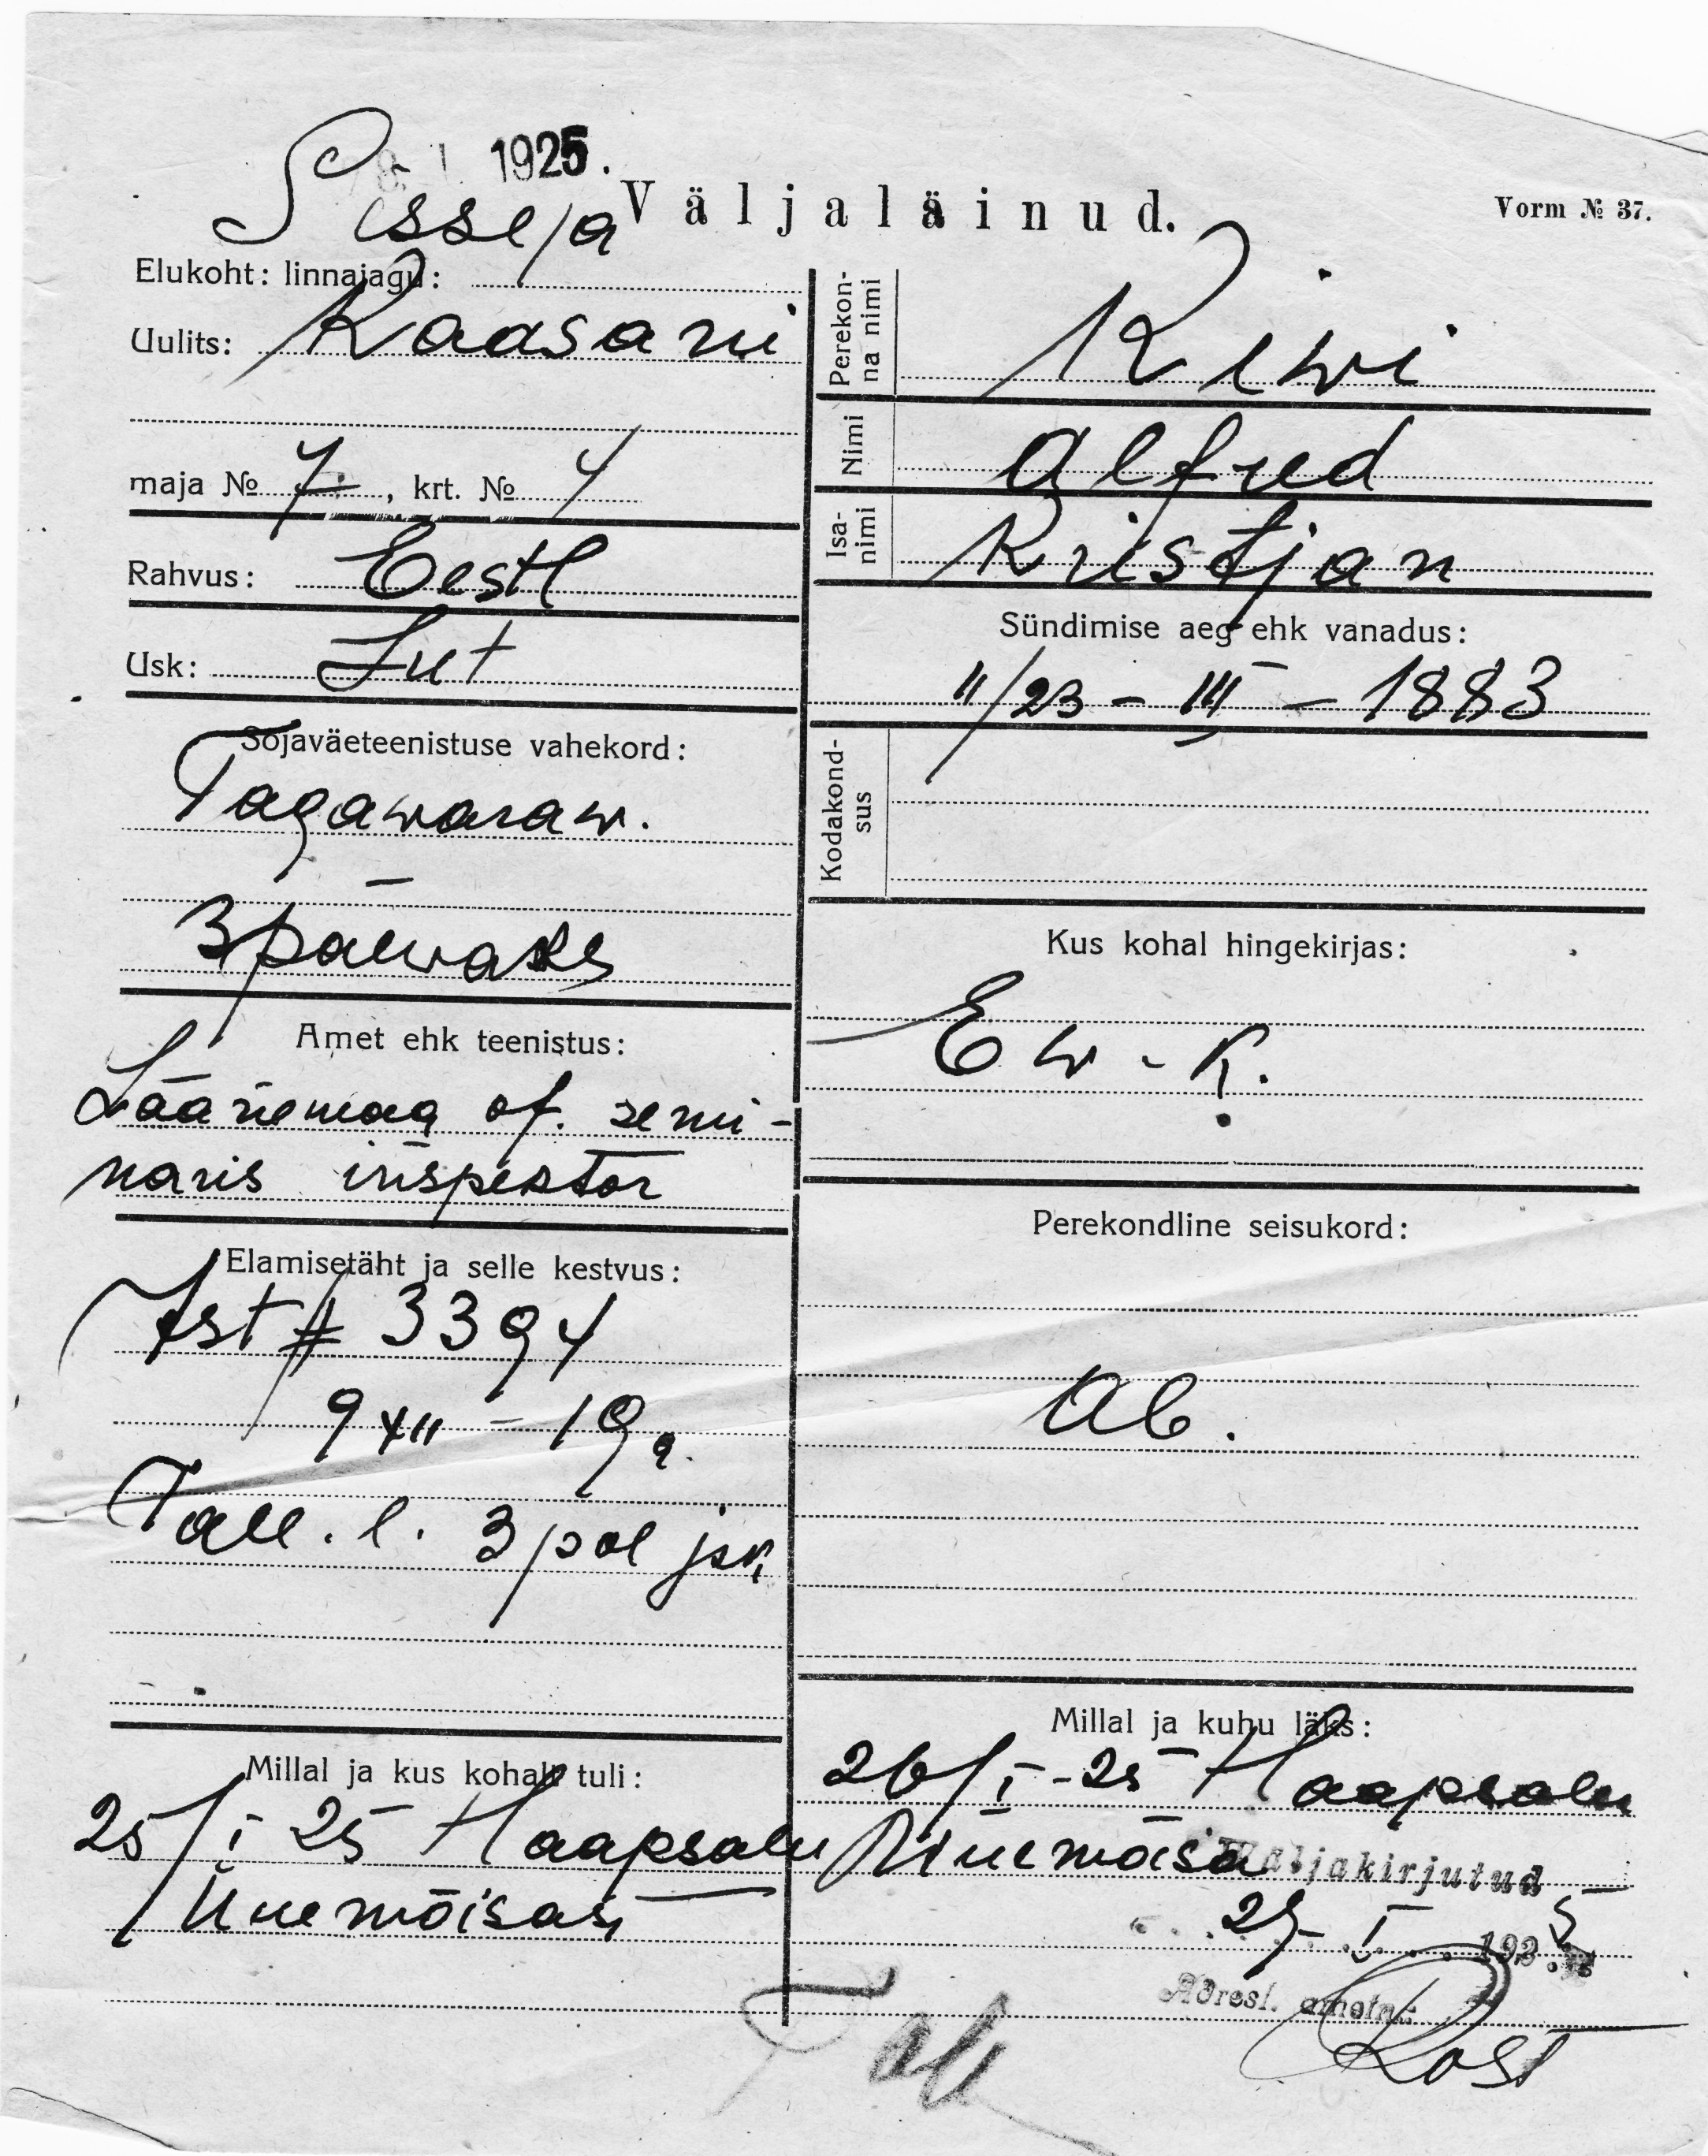 1925.
Sisse ja Väljaläinud.
Vorm № 37.
Elukoht: linnajagu:
Uulits: Kaasani
maja № 7, krt. № 4
Rahvus: Eestl
Usk: Lut
Sõjaväeteenistuse vahekord:
Tagawaraw.
3 päewaks
Amet ehk teenistus:
Läänemaa õp. semi-
naris inspektor
Elamisetäht ja selle kestvus:
3394
9 XII - 19
Tall. l. 3 pol jsk
Millal ja kus kohalt tuli:
25/I 25 Haapsalu
Uuemõisast
Perekon-
na nimi
Kiwi
Nimi
Alfred
Isa-
nimi
Kristjan
Sündimise aeg ehk vanadus:
11/23 - III - 1883
Kodakond-
sus
Kus kohal hingekirjas:
Ew - K.
Perekondline seisukord:
Ab.
Millal ja kuhu läks:
26/I - 25 Haapsalu
Uuemõisa
Väljakirjutud
I 1925
Adresl. ametn.:
Rost
Tall